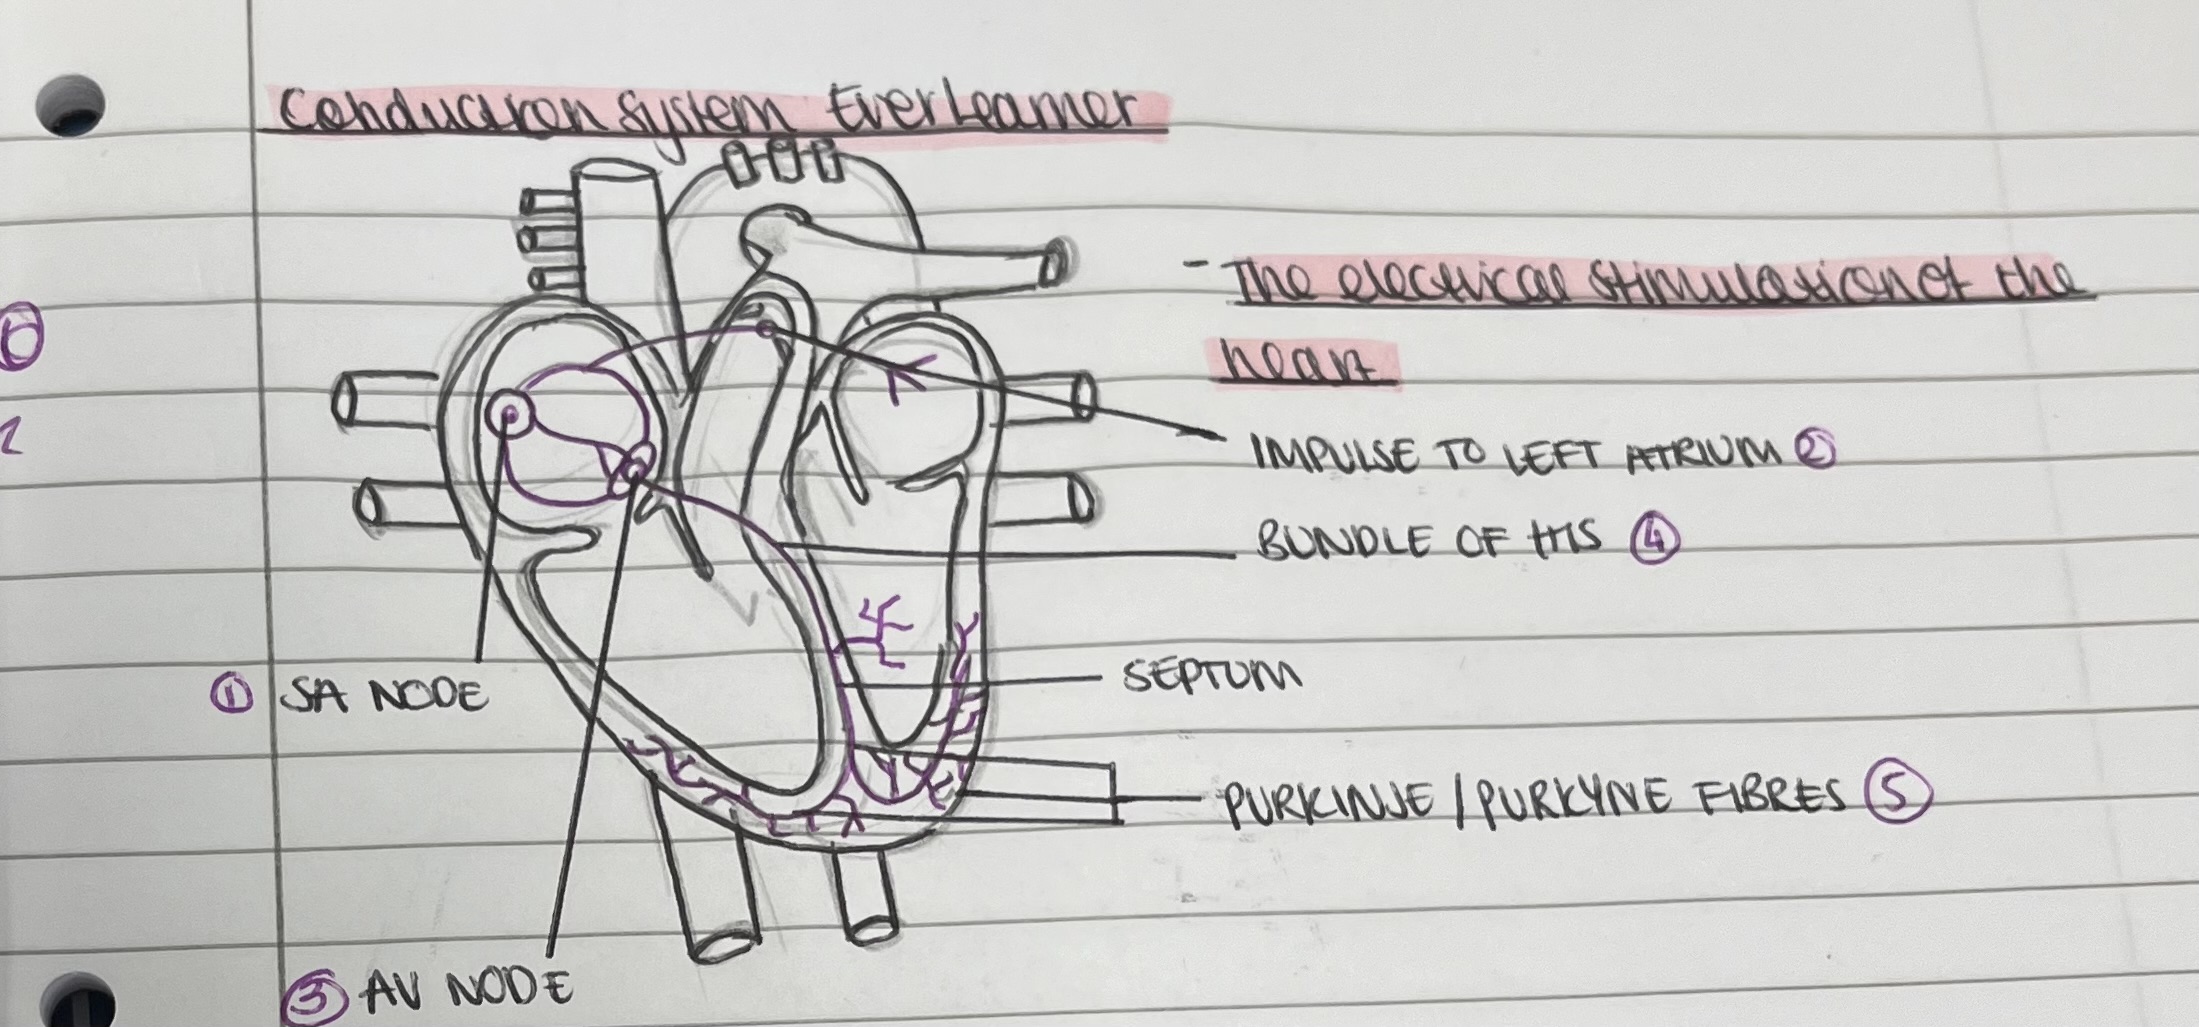 Conduction System EverLearner
- The electrical stimulation of the
heart
IMPULSE TO LEFT ATRIUM ②
BUNDLE OF HIS ④
① SA NODE
SEPTUM
PURKINJE / PURKYNE FIBRES ⑤
③ AV NODE